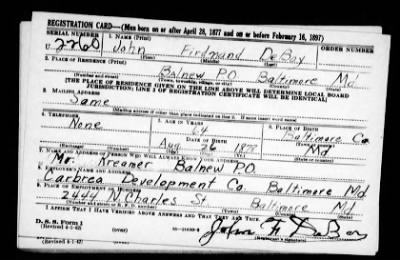 REGISTRATION CARD—(Men born on or after April 28, 1877 and on or before February 16, 1897)
SERIAL NUMBER 1. NAME (Print) ORDER NUMBER
U 2260 John Firdnand DeBoy
2. PLACE OF RESIDENCE (Print)
Balnew P.O. Baltimore Md
(Number and street) (Town, township, village, or city) (County) (State)
[THE PLACE OF RESIDENCE GIVEN ON THE LINE ABOVE WILL DETERMINE LOCAL BOARD
JURISDICTION; LINE 2 OF REGISTRATION CERTIFICATE WILL BE IDENTICAL]
3. MAILING ADDRESS
Same
[Mailing address if other than place indicated on line 2. If same insert word same]
4. TELEPHONE 5. AGE IN YEARS 6. PLACE OF BIRTH
None 64 Baltimore Co.
DATE OF BIRTH
Aug 26 1877 Md
7. NAME AND ADDRESS OF PERSON WHO WILL ALWAYS KNOW YOUR ADDRESS
Mr. Kreamer Balnew P.O.
8. EMPLOYER'S NAME AND ADDRESS
Carbrea Development Co. Baltimore Md
9. PLACE OF EMPLOYMENT OR BUSINESS
2444 N. Charles St Baltimore Md
I AFFIRM THAT I HAVE VERIFIED ABOVE ANSWERS AND THAT THEY ARE TRUE.
D. S. S. Form 1
(Revised 4-1-42) John F. DeBoy
(Registrant's signature)